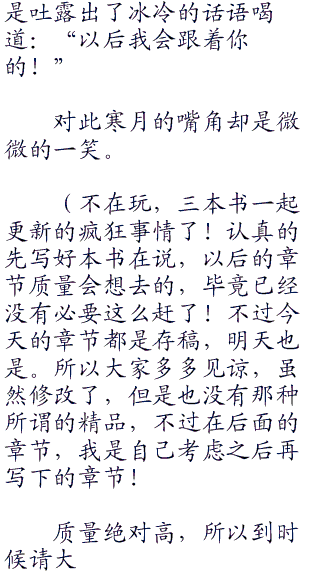 是吐露出了冰冷的话语喝
道：“以后我会跟着你
的！”
对此寒月的嘴角却是微
微的一笑。
（不在玩，三本书一起
更新的疯狂事情了！认真的
先写好本书在说，以后的章
节质量会想去的，毕竟已经
没有必要这么赶了！不过今
天的章节都是存稿，明天也
是。所以大家多多见谅，虽
然修改了，但是也没有那种
所谓的精品，不过在后面的
章节，我是自己考虑之后再
写下的章节！
质量绝对高，所以到时
候请大